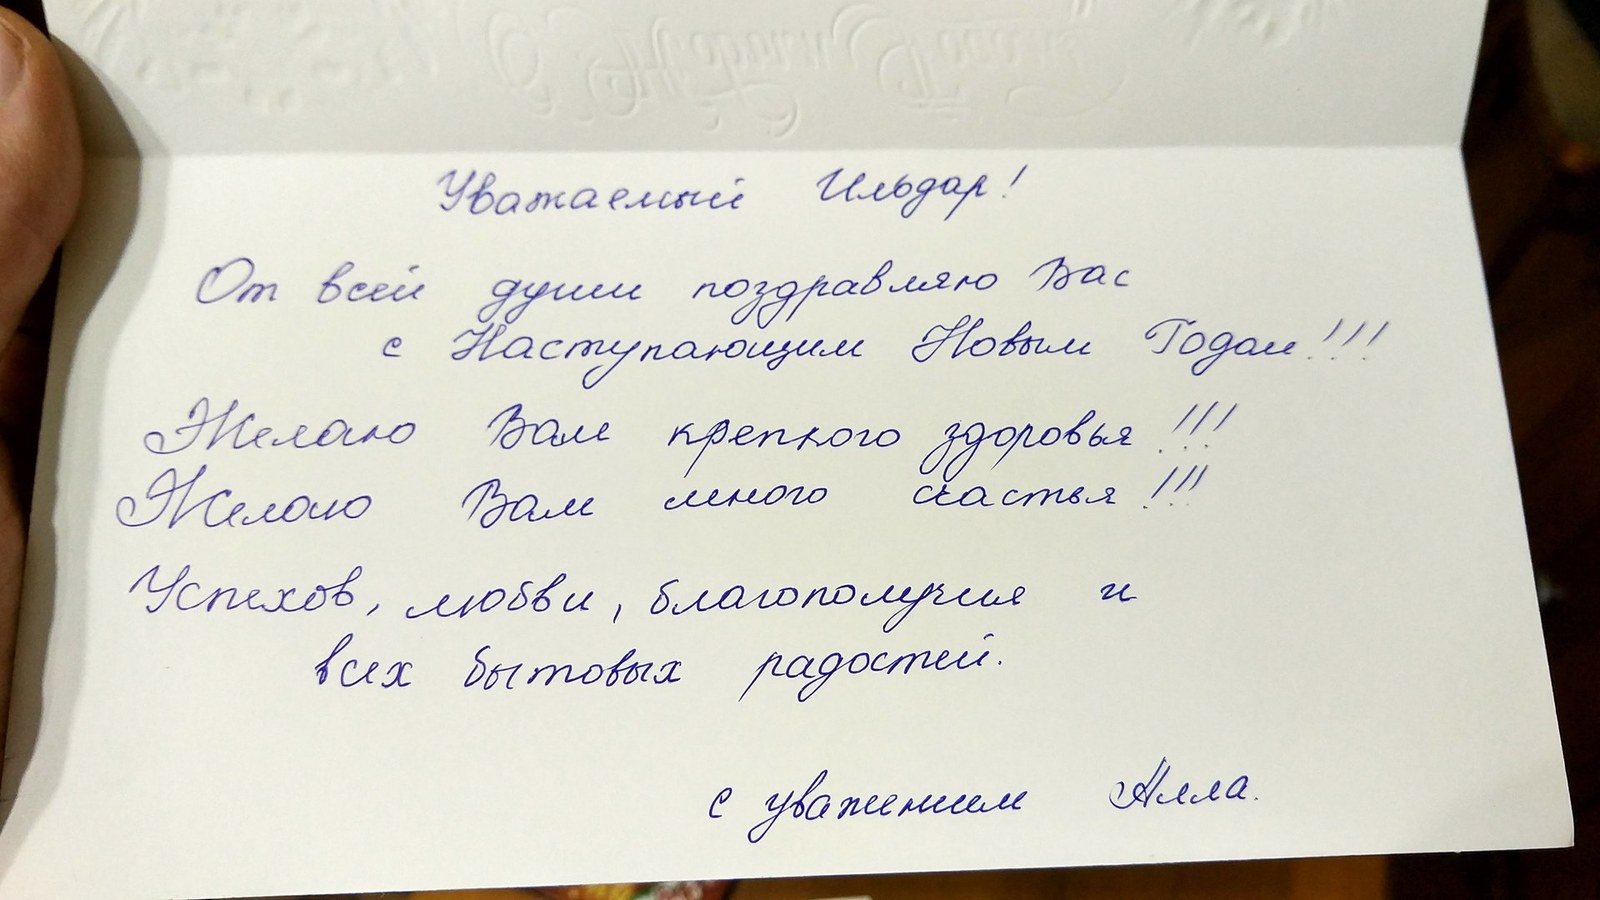 Уважаемый Ильдар!
От всей души поздравляю Вас
с Наступающим Новым Годом!!!
Желаю Вам крепкого здоровья!!!
Желаю Вам много счастья!!!
Успехов, любви, благополучия и
всех бытовых радостей.
с уважением Алла.